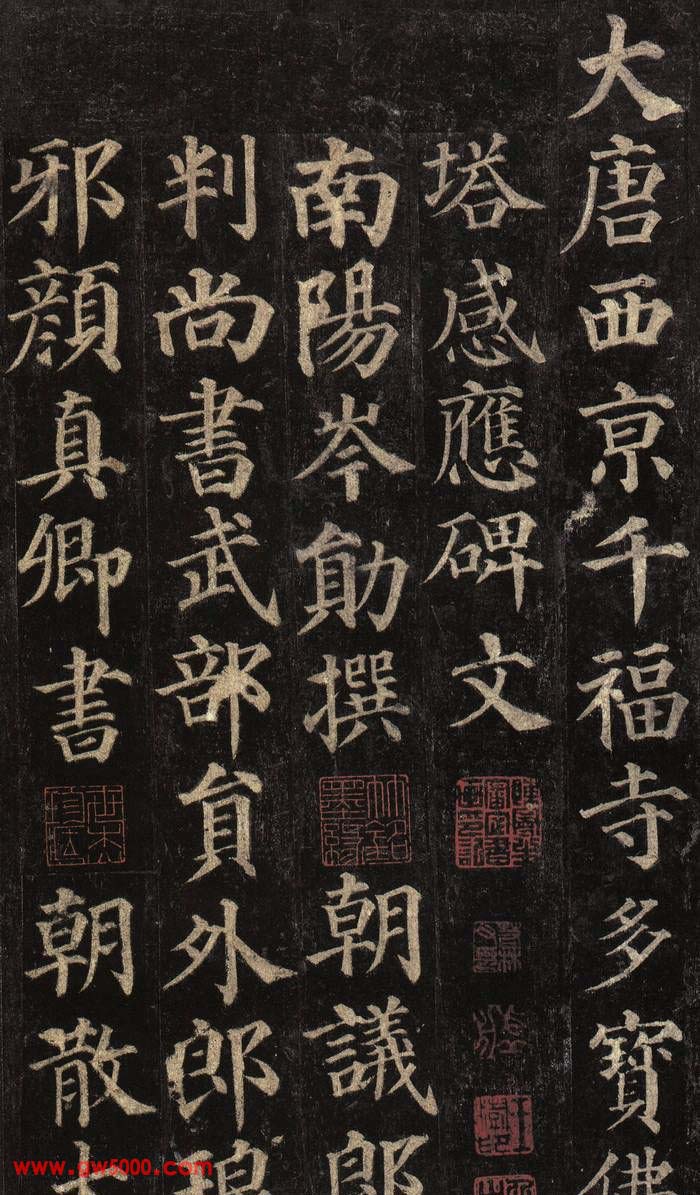 大唐西京千福寺多寳佛
塔感應碑文
南陽岑勛撰 朝議郎
判尚書武部負外郎琅
邪顏真卿書 朝散大
www.qw5000.com